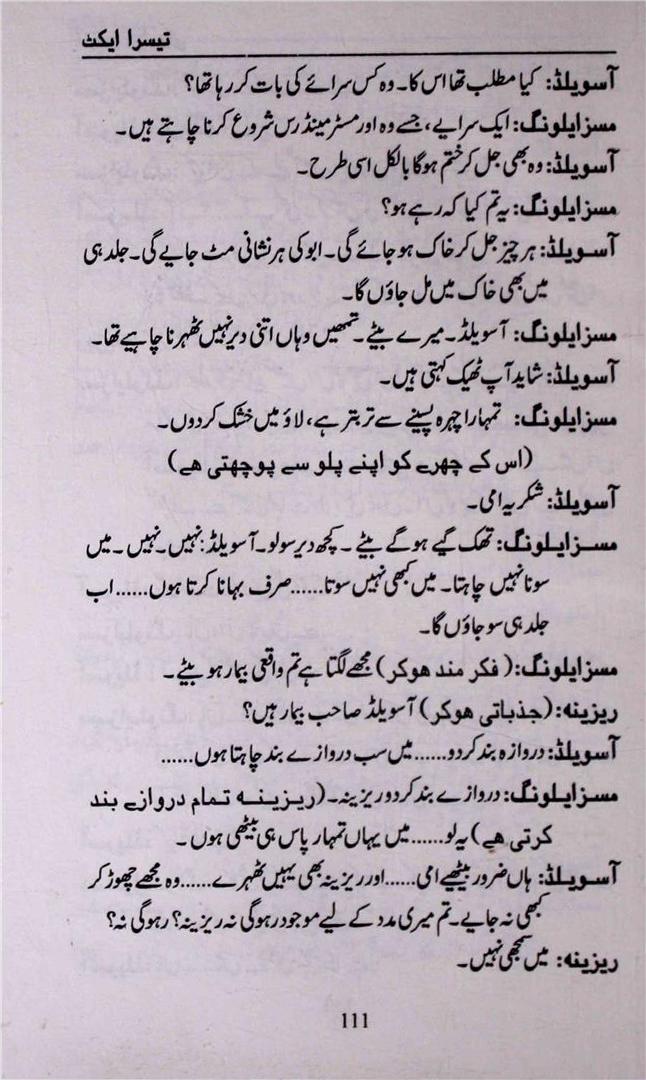 تیسرا ایکٹ
آسویلڈ: کیا مطلب تھا اس کا۔ وہ کس سرائے کی بات کر رہا تھا؟
مسز ایلونگ: ایک سرایے، جسے وہ اور مسٹر مینڈرس شروع کرنا چاہتے ہیں۔
آسویلڈ: وہ بھی جل کر ختم ہوگا بالکل اسی طرح۔
مسز ایلونگ: یہ تم کیا کہہ رہے ہو؟
آسویلڈ: ہر چیز جل کر خاک ہو جائے گی۔ ابو کی ہر نشانی مٹ جایے گی۔ جلد ہی
میں بھی خاک میں مل جاؤں گا۔
مسز ایلونگ: آسویلڈ۔ میرے بیٹے۔ تمھیں وہاں اتنی دیر نہیں ٹھہرنا چاہیے تھا۔
آسویلڈ: شاید آپ ٹھیک کہتی ہیں۔
مسز ایلونگ: تمہارا چہرہ پسینے سے تربتر ہے، لاؤ میں خشک کردوں۔
(اس کے چھرے کو اپنے پلو سے پوچھتی ھے)
آسویلڈ: شکریہ امی۔
مسز ایلونگ: تھک گیے ہوگے بیٹے۔ کچھ دیر سولو۔ آسویلڈ: نہیں۔ نہیں۔ میں
سونا نہیں چاہتا۔ میں کبھی نہیں سوتا...... صرف بہانا کرتا ہوں...... اب
جلد ہی سو جاؤں گا۔
مسز ایلونگ: (فکر مند ھوکر) مجھے لگتا ہے تم واقعی بیمار ہو بیٹے۔
ریزینہ: (جذباتی ھوکر) آسویلڈ صاحب بیمار ہیں؟
آسویلڈ: دروازہ بند کردو...... میں سب دروازے بند چاہتا ہوں......
مسز ایلونگ: دروازے بند کردو ریزینہ۔ (ریزینہ تمام دروازے بند
کرتی ھے) یہ لو...... میں یہاں تمہار پاس ہی بیٹھی ہوں۔
آسویلڈ: ہاں ضرور بیٹھیے امی...... اور ریزینہ بھی یہیں ٹھہرے...... وہ مجھے چھوڑ کر
کبھی نہ جایے۔ تم میری مدد کے لیے موجود رہوگی نہ ریزینہ؟ رہوگی نہ؟
ریزینہ: میں سمجھی نہیں۔
111